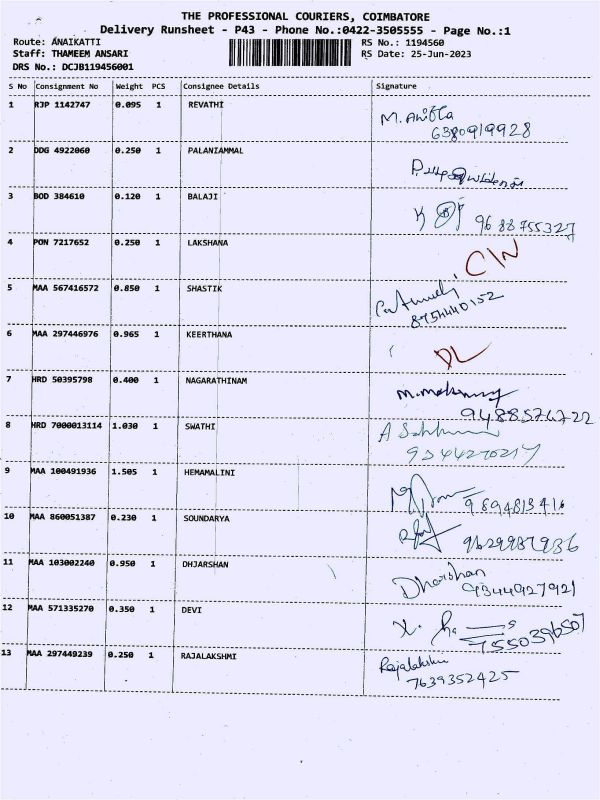 THE PROFESSIONAL COURIERS, COIMBATORE
Delivery Runsheet - P43 - Phone No.:0422-3505555 - Page No.:1
Route: ANAIKATTI RS No.: 1194560
Staff: THAMEEM ANSARI RS Date: 25-Jun-2023
DRS No.: DCJB119456001
S No Consignment No Weight PCS Consignee Details Signature
1 RJP 1142747 0.095 1 REVATHI
6380919928
2 DDG 4922060 0.250 1 PALANIAMMAL
3 BOD 384610 0.120 1 BALAJI
K 9688755327
4 PON 7217652 0.250 1 LAKSHANA
C/N
5 MAA 567416572 0.850 1 SHASTIK
8754440152
6 MAA 297446976 0.965 1 KEERTHANA
DL
7 HRD 50395798 0.400 1 NAGARATHINAM
9488574722
8 HRD 7000013114 1.030 1 SWATHI
A
9344270217
9 MAA 100491936 1.505 1 HEMAMALINI
9894813416
10 MAA 860051387 0.230 1 SOUNDARYA
9629937936
11 MAA 103002240 0.950 1 DHJARSHAN
Dharshan
9344927921
12 MAA 571335270 0.350 1 DEVI
7550396507
13 MAA 297449239 0.250 1 RAJALAKSHMI
Rajalakshmi
7639352425